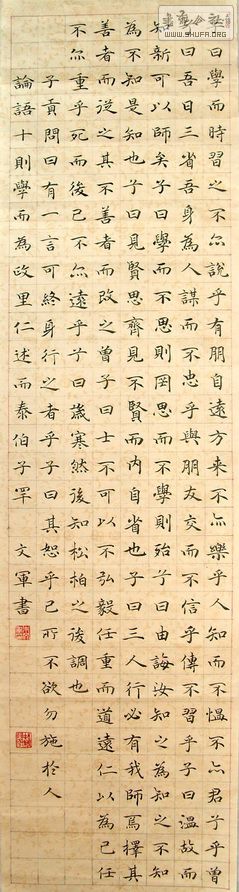 曰學而時習之不亦說乎有朋自遠方來不亦樂乎人知而不愠不亦君子乎曾
曰吾日三省吾身為人謀而不忠乎與朋友交而不信乎傳不習乎子曰溫故而
知新可以師矣子曰學而不思則罔思而不學則殆子曰由誨汝知之為知之不知
為不知是知也子曰見賢思齊見不賢而內自省也子曰三人行必有我師焉擇其
善者而從之其不善者而改之曾子曰士不可以不弘毅任重而道遠仁以為己任
不亦重乎死而後已不亦遠乎子曰歲寒然後知松柏之後調也
子貢問曰有一言可終身行之者乎子曰其恕乎己所不欲勿施於人
論語十則學而為政里仁述而泰伯子罕 文軍書
WWW.SHUFA.ORG